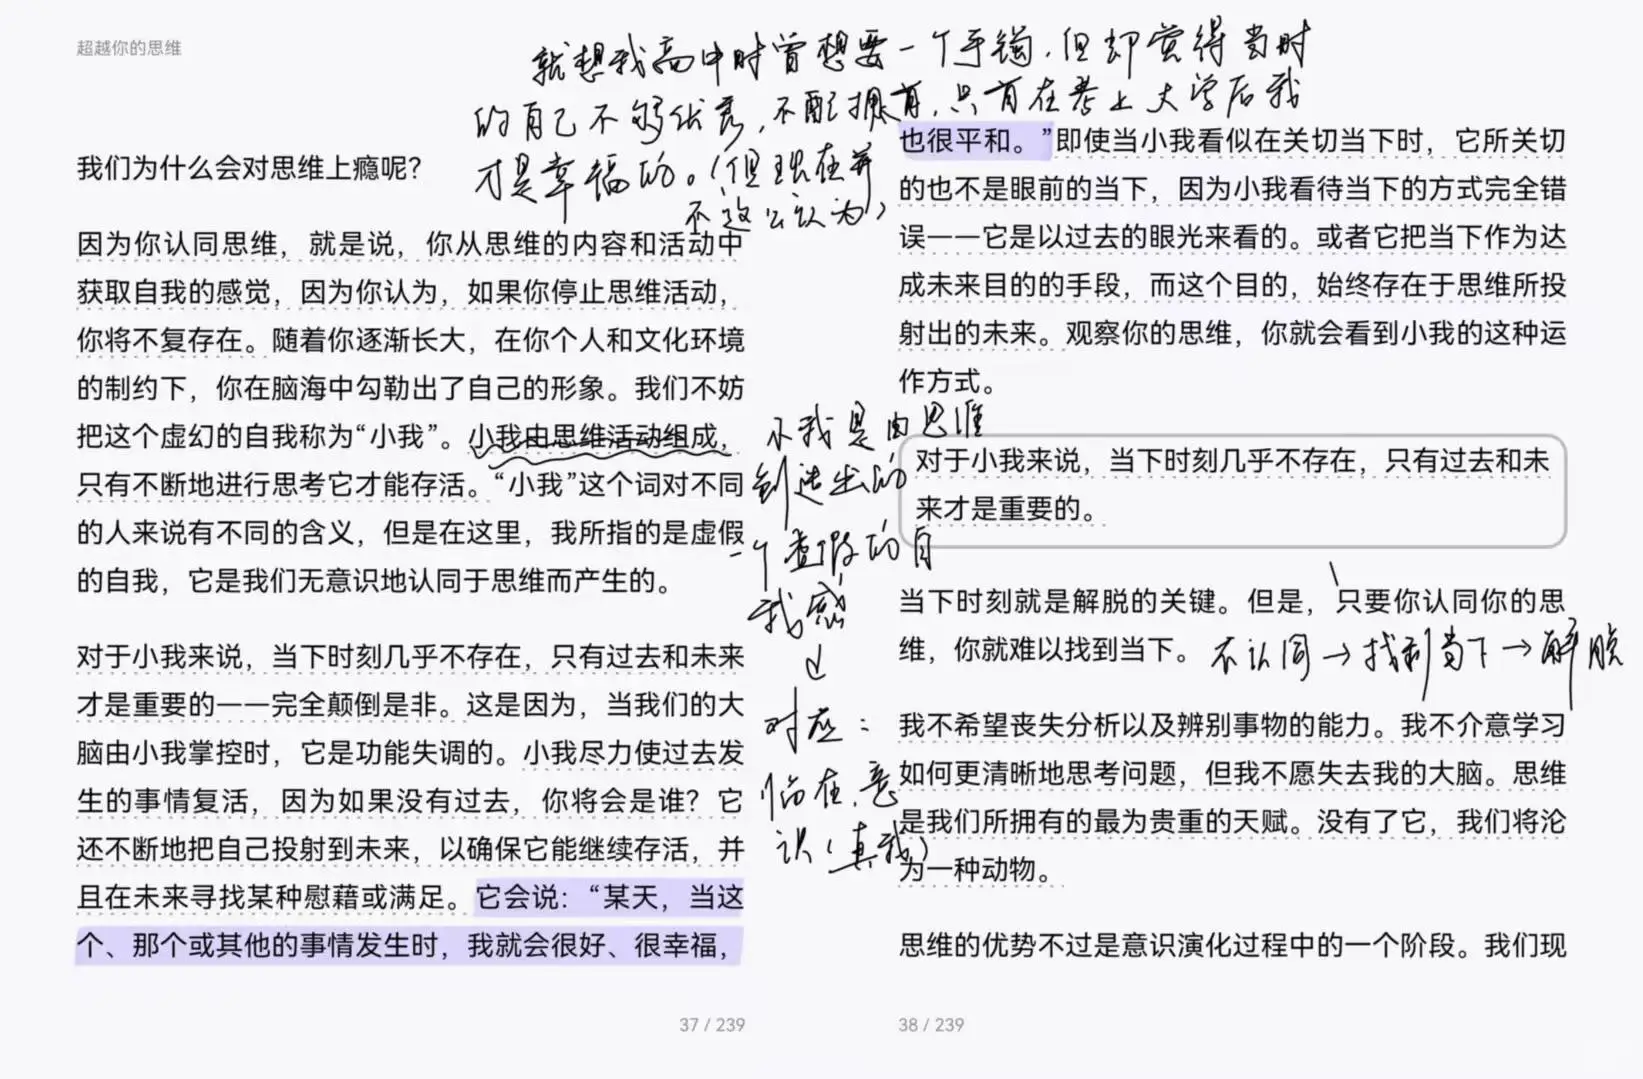 超越你的思维
就想我高中时曾想要一个手镯,但却觉得当时
的自己不够优秀,不配拥有,只有在考上大学后我
才是幸福的。(但现在并
不这么认为)
我们为什么会对思维上瘾呢?
因为你认同思维,就是说,你从思维的内容和活动中
获取自我的感觉,因为你认为,如果你停止思维活动,
你将不复存在。随着你逐渐长大,在你个人和文化环境
的制约下,你在脑海中勾勒出了自己的形象。我们不妨
把这个虚幻的自我称为“小我”。小我由思维活动组成,
只有不断地进行思考它才能存活。“小我”这个词对不同
的人来说有不同的含义,但是在这里,我所指的是虚假
的自我,它是我们无意识地认同于思维而产生的。
对于小我来说,当下时刻几乎不存在,只有过去和未来
才是重要的——完全颠倒是非。这是因为,当我们的大
脑由小我掌控时,它是功能失调的。小我尽力使过去发
生的事情复活,因为如果没有过去,你将会是谁?它
还不断地把自己投射到未来,以确保它能继续存活,并
且在未来寻找某种慰藉或满足。它会说:“某天,当这
个、那个或其他的事情发生时,我就会很好、很幸福,
37 / 239
小我是由思维
创造出的
一个虚假的自
我感
对应:
临在.意
识(真我)
也很平和。”即使当小我看似在关切当下时,它所关切
的也不是眼前的当下,因为小我看待当下的方式完全错
误——它是以过去的眼光来看的。或者它把当下作为达
成未来目的的手段,而这个目的,始终存在于思维所投
射出的未来。观察你的思维,你就会看到小我的这种运
作方式。
对于小我来说,当下时刻几乎不存在,只有过去和未
来才是重要的。
当下时刻就是解脱的关键。但是,只要你认同你的思
维,你就难以找到当下。
不认同→找到当下→解脱
我不希望丧失分析以及辨别事物的能力。我不介意学习
如何更清晰地思考问题,但我不愿失去我的大脑。思维
是我们所拥有的最为贵重的天赋。没有了它,我们将沦
为一种动物。
思维的优势不过是意识演化过程中的一个阶段。我们现
38 / 239